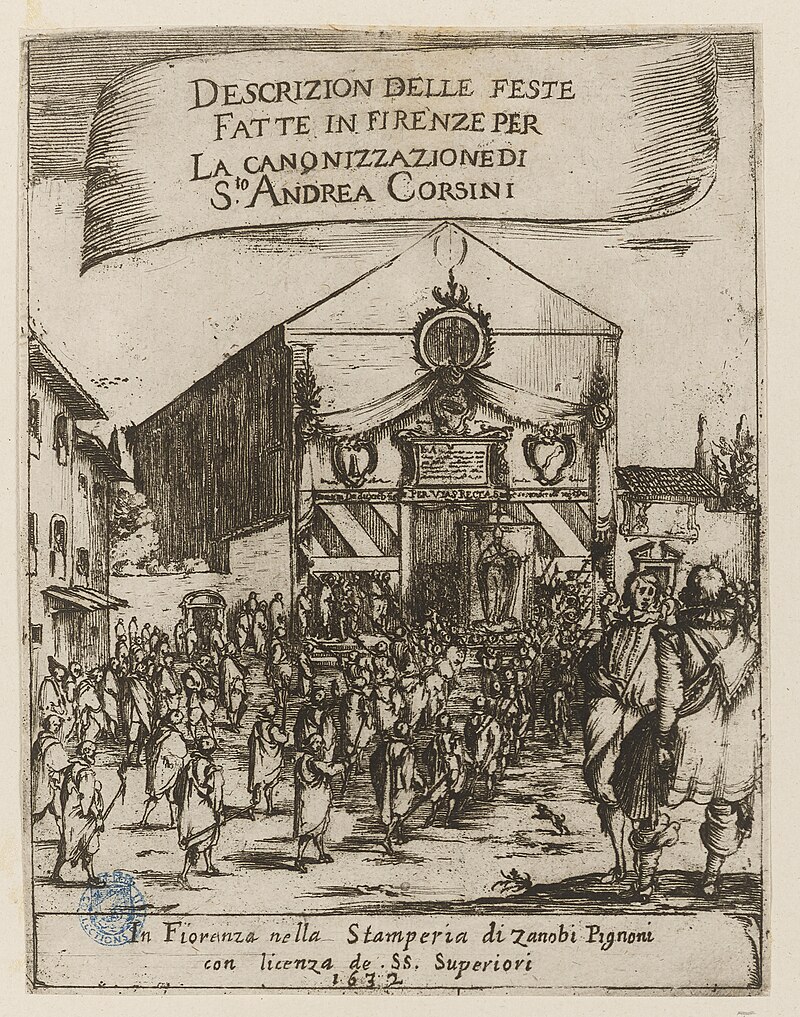 DESCRIZION DELLE FESTE
FATTE IN FIRENZE PER
LA CANONIZZAZIONE DI
S.to ANDREA CORSINI
PER VIAS RECTAS
In Fiorenza nella Stamperia di Zanobi Pignoni
con licenza de SS. Superiori
1632